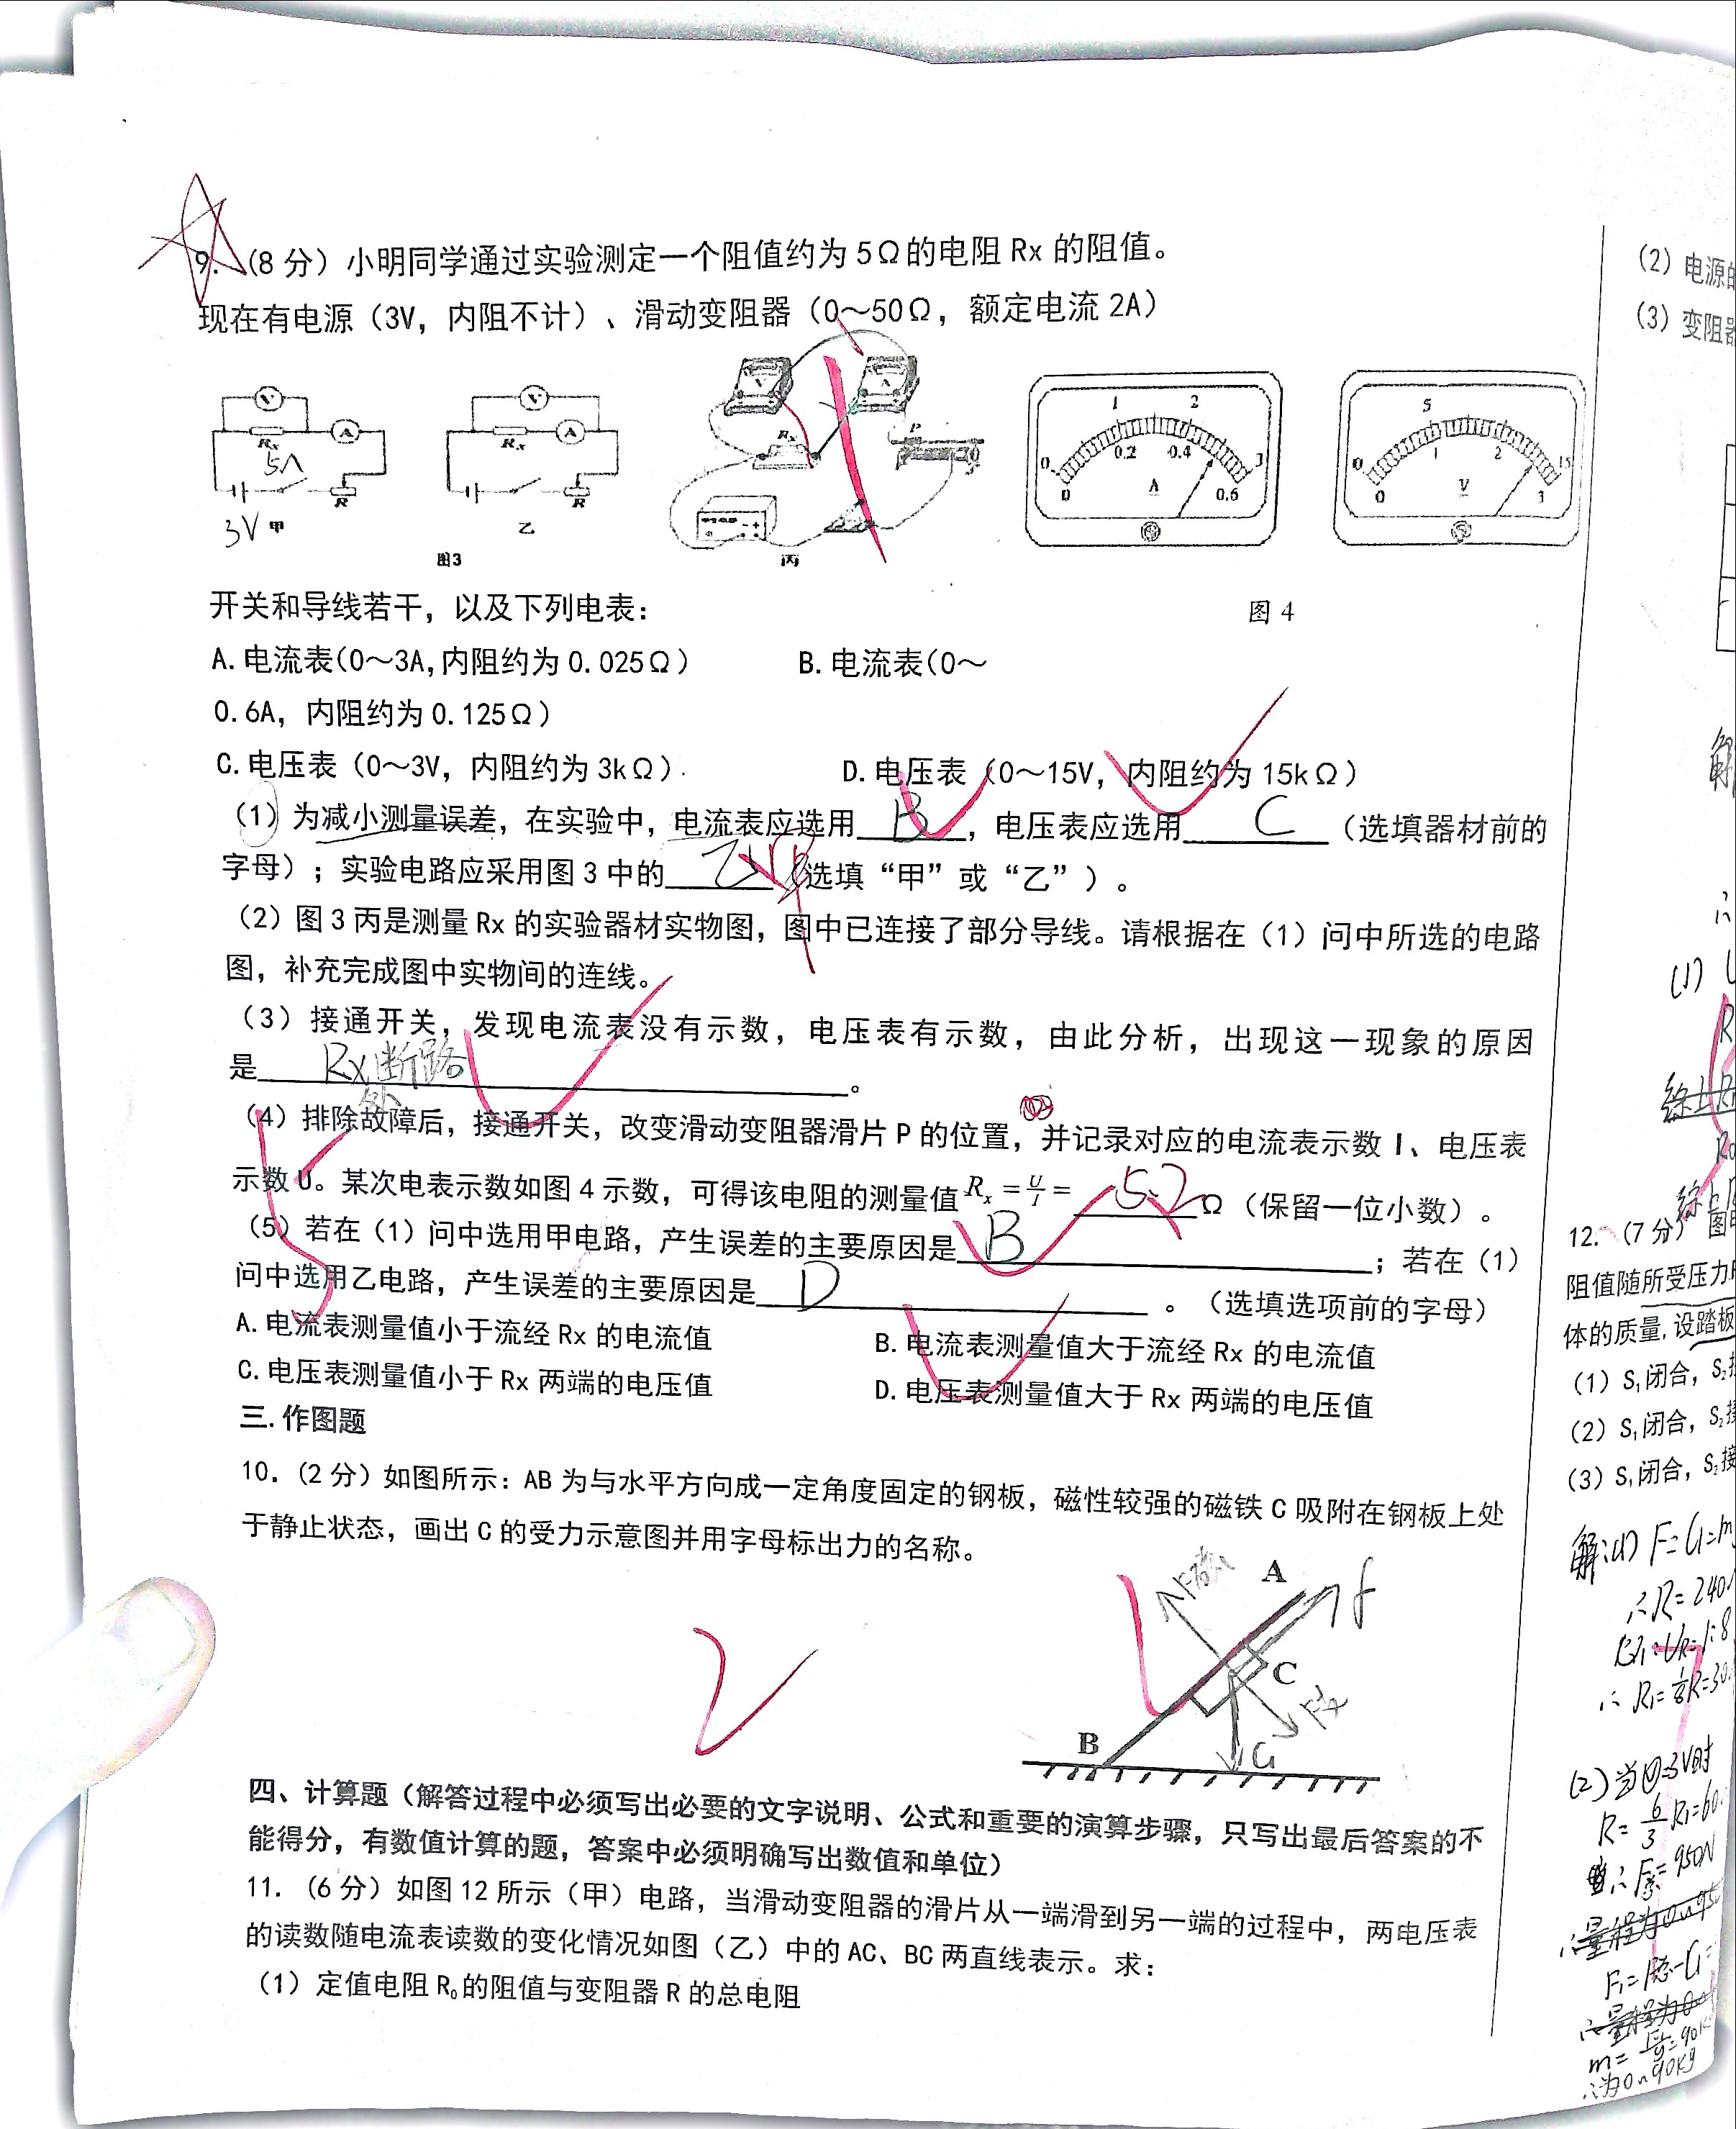 9. (8分）小明同学通过实验测定一个阻值约为5Ω的电阻Rx的阻值。
现在有电源（3V，内阻不计）、滑动变阻器（0～50Ω，额定电流2A）
V
A
Rx
R
5Λ
3V
甲
V
A
Rx
R
乙
图3
V
A
Rx
P
丙
0 1 2 3
0 0.2 0.4 0.6
A
0 5 15
0 1 2 3
V
开关和导线若干，以及下列电表：
图4
A.电流表(0～3A,内阻约为0.025Ω） B.电流表(0～
0.6A，内阻约为0.125Ω）
C.电压表（0～3V，内阻约为3kΩ） D.电压表（0～15V，内阻约为15kΩ）
（1）为减小测量误差，在实验中，电流表应选用 B ，电压表应选用 C （选填器材前的
字母）；实验电路应采用图3中的 乙 （选填“甲”或“乙”）。
（2）图3丙是测量Rx的实验器材实物图，图中已连接了部分导线。请根据在（1）问中所选的电路
图，补充完成图中实物间的连线。
（3）接通开关，发现电流表没有示数，电压表有示数，由此分析，出现这一现象的原因
是 Rx断路
处
（4）排除故障后，接通开关，改变滑动变阻器滑片P的位置，并记录对应的电流表示数I、电压表
示数U。某次电表示数如图4示数，可得该电阻的测量值Rx=U/I= 5.2 Ω（保留一位小数）。
（5）若在（1）问中选用甲电路，产生误差的主要原因是 B ；若在（1）
问中选用乙电路，产生误差的主要原因是 D 。（选填选项前的字母）
A.电流表测量值小于流经Rx的电流值 B.电流表测量值大于流经Rx的电流值
C.电压表测量值小于Rx两端的电压值 D.电压表测量值大于Rx两端的电压值
三.作图题
10.(2分）如图所示：AB为与水平方向成一定角度固定的钢板，磁性较强的磁铁C吸附在钢板上处
于静止状态，画出C的受力示意图并用字母标出力的名称。
A
f
C
F支
B
G
四、计算题（解答过程中必须写出必要的文字说明、公式和重要的演算步骤，只写出最后答案的不
能得分，有数值计算的题，答案中必须明确写出数值和单位）
11.（6分）如图12所示（甲）电路，当滑动变阻器的滑片从一端滑到另一端的过程中，两电压表
的读数随电流表读数的变化情况如图（乙）中的AC、BC两直线表示。求：
（1）定值电阻R₀的阻值与变阻器R的总电阻
（2）电源
（3）变阻器
(1)
12.（7分）图
阻值随所受压力
体的质量,设踏板
（1）S₁闭合，S₂
（2）S₁闭合，S₂接
（3）S₁闭合，S₂接
解:(1) F=G=m
∴R=240
U₁:UR=1:8
∴R₁=1/8R=30
(2)当U=3V时
R=6/3R₁=60
F=950N
m=F₁/g=90kg
∴为0~90kg